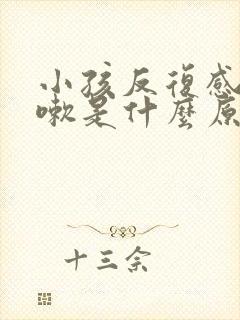 小孩反復感
嗽是什麼原
十三余